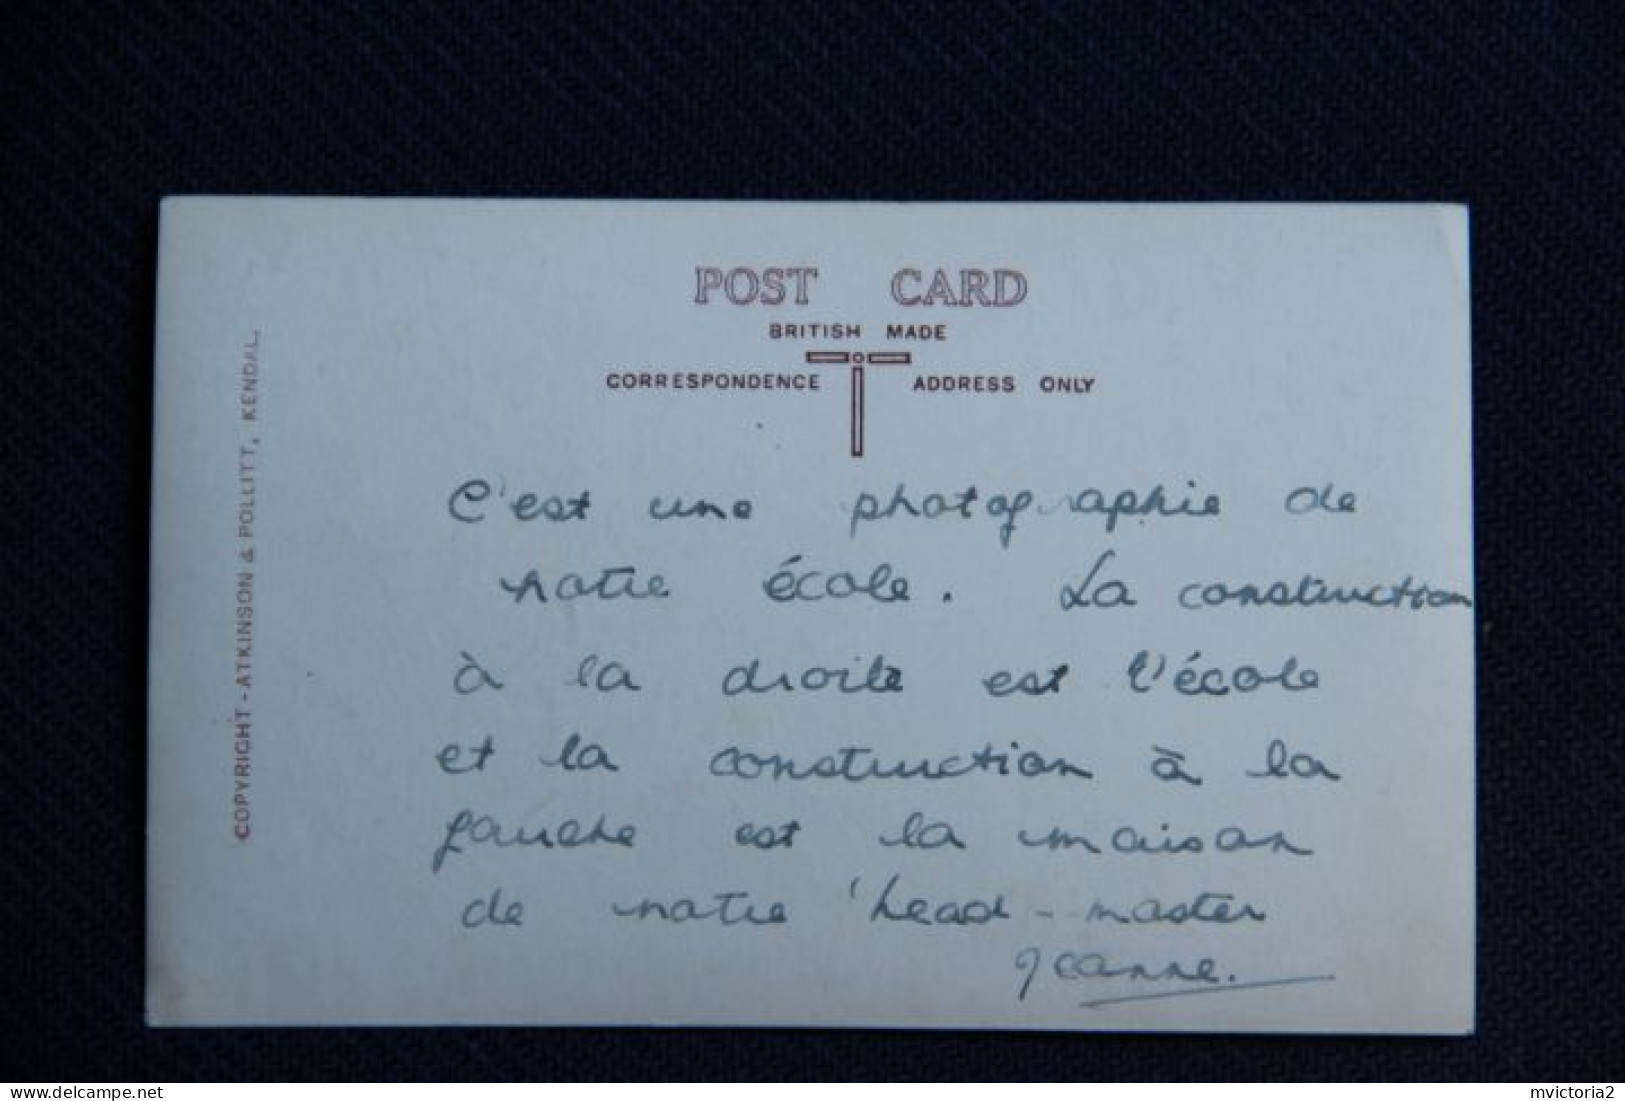 POST CARD
BRITISH MADE
CORRESPONDENCE ADDRESS ONLY
COPYRIGHT - ATKINSON & POLLITT, KENDAL.
C'est une photographie de
notre école. La construction
à la droite est l'école
et la construction à la
gauche est la maison
de notre 'head-master
Jeanne.
delcampe.net
mvictoria2